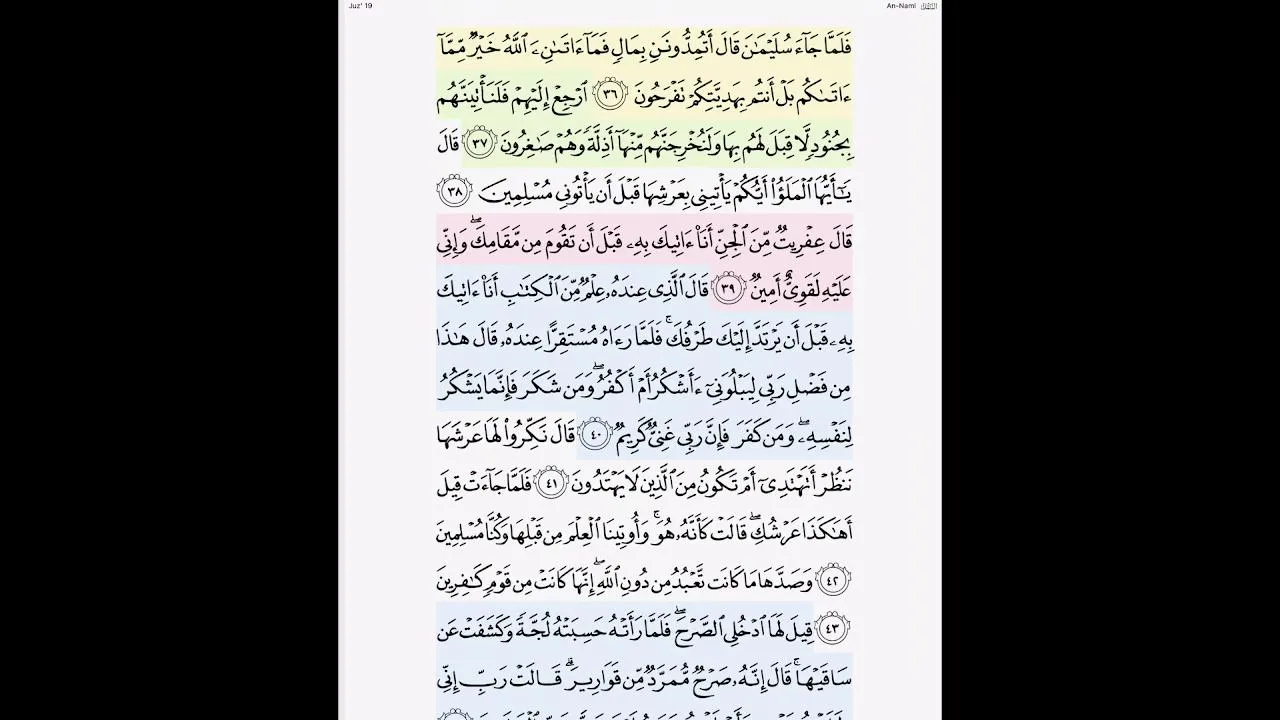 Juz' 19
An-Naml
فَلَمَّا جَآءَ سُلَيْمَـٰنَ قَالَ أَتُمِدُّونَنِ بِمَالٍ فَمَآ ءَاتَىٰنِۦَ ٱللَّهُ خَيْرٌ مِّمَّآ
ءَاتَىٰكُم بَلْ أَنتُم بِهَدِيَّتِكُمْ تَفْرَحُونَ ٣٦ ٱرْجِعْ إِلَيْهِمْ فَلَنَأْتِيَنَّهُم
بِجُنُودٍ لَّا قِبَلَ لَهُم بِهَا وَلَنُخْرِجَنَّهُم مِّنْهَآ أَذِلَّةً وَهُمْ صَـٰغِرُونَ ٣٧ قَالَ
يَـٰٓأَيُّهَا ٱلْمَلَؤُا۟ أَيُّكُمْ يَأْتِينِى بِعَرْشِهَا قَبْلَ أَن يَأْتُونِى مُسْلِمِينَ ٣٨
قَالَ عِفْرِيتٌ مِّنَ ٱلْجِنِّ أَنَا۠ ءَاتِيكَ بِهِۦ قَبْلَ أَن تَقُومَ مِن مَّقَامِكَ ۖ وَإِنِّى
عَلَيْهِ لَقَوِىٌّ أَمِينٌ ٣٩ قَالَ ٱلَّذِى عِندَهُۥ عِلْمٌ مِّنَ ٱلْكِتَـٰبِ أَنَا۠ ءَاتِيكَ
بِهِۦ قَبْلَ أَن يَرْتَدَّ إِلَيْكَ طَرْفُكَ ۚ فَلَمَّا رَءَاهُ مُسْتَقِرًّا عِندَهُۥ قَالَ هَـٰذَا
مِن فَضْلِ رَبِّى لِيَبْلُوَنِىٓ ءَأَشْكُرُ أَمْ أَكْفُرُ ۖ وَمَن شَكَرَ فَإِنَّمَا يَشْكُرُ
لِنَفْسِهِۦ ۖ وَمَن كَفَرَ فَإِنَّ رَبِّى غَنِىٌّ كَرِيمٌ ٤٠ قَالَ نَكِّرُوا۟ لَهَا عَرْشَهَا
نَنظُرْ أَتَهْتَدِىٓ أَمْ تَكُونُ مِنَ ٱلَّذِينَ لَا يَهْتَدُونَ ٤١ فَلَمَّا جَآءَتْ قِيلَ
أَهَـٰكَذَا عَرْشُكِ ۖ قَالَتْ كَأَنَّهُۥ هُوَ ۚ وَأُوتِينَا ٱلْعِلْمَ مِن قَبْلِهَا وَكُنَّا مُسْلِمِينَ
٤٢ وَصَدَّهَا مَا كَانَت تَّعْبُدُ مِن دُونِ ٱللَّهِ ۖ إِنَّهَا كَانَتْ مِن قَوْمٍ كَـٰفِرِينَ
٤٣ قِيلَ لَهَا ٱدْخُلِى ٱلصَّرْحَ ۖ فَلَمَّا رَأَتْهُ حَسِبَتْهُ لُجَّةً وَكَشَفَتْ عَن
سَاقَيْهَا ۚ قَالَ إِنَّهُۥ صَرْحٌ مُّمَرَّدٌ مِّن قَوَارِيرَ ۗ قَالَتْ رَبِّ إِنِّى